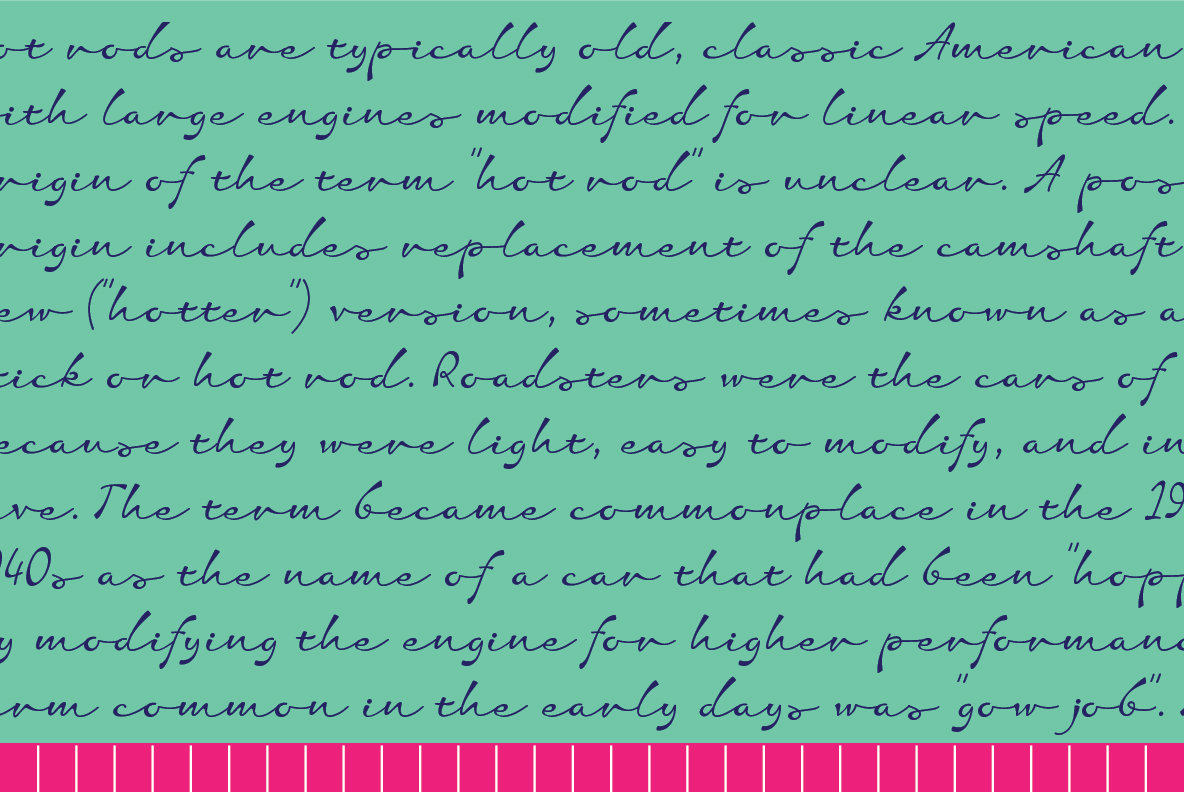 ot rods are typically old, classic American
ith large engines modified for linear speed.
rigin of the term "hot rod" is unclear. A pos
rigin includes replacement of the camshaft
ew ("hotter") version, sometimes known as a
tick or hot rod. Roadsters were the cars of
ecause they were light, easy to modify, and in
ve. The term became commonplace in the 19
940s as the name of a car that had been "hopp
y modifying the engine for higher performanc
rm common in the early days was "gow job".